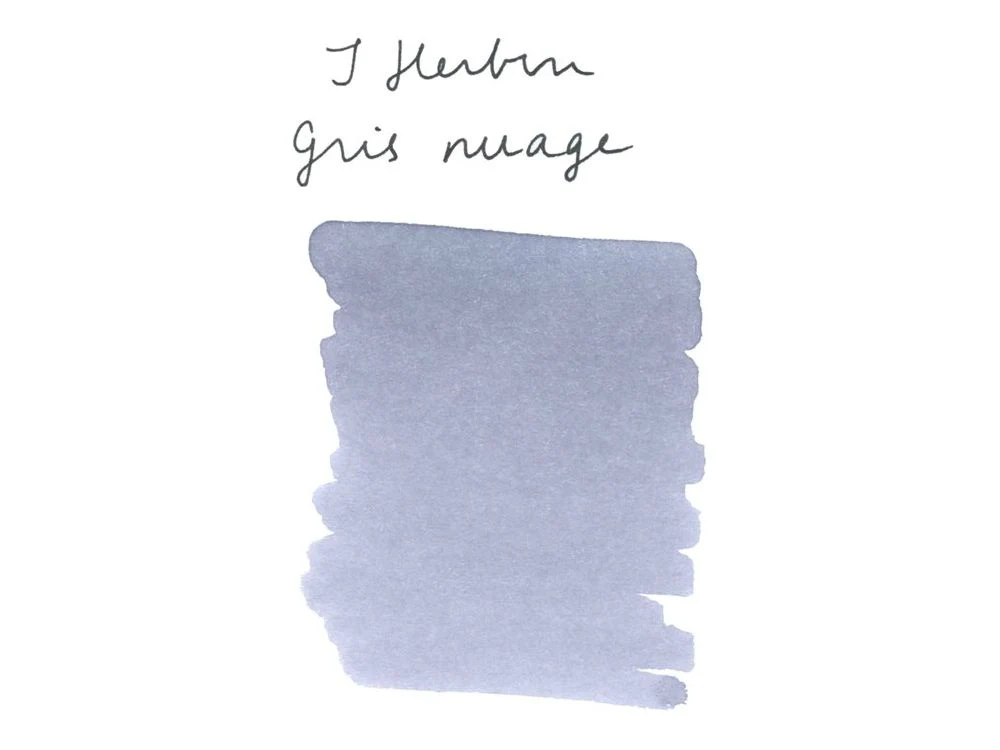 J Herbin
Gris nuage